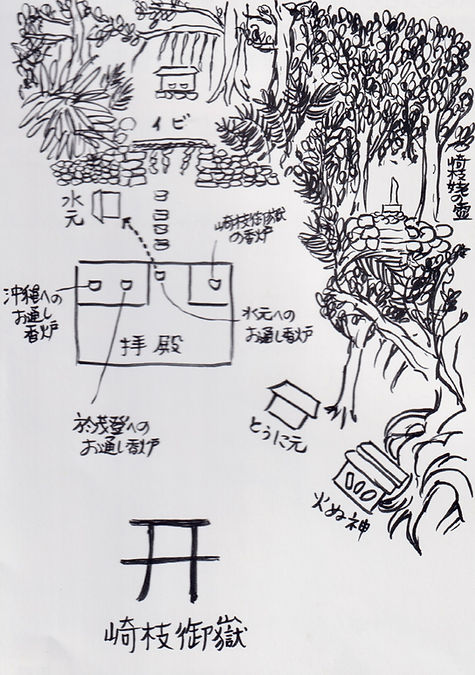 イビ
崎枝姥の墓
水元
崎枝御嶽
の香炉
沖縄への
お通し
香炉
水元への
お通し香炉
拝殿
於茂登への
お通し香炉
とうに元
火ぬ神
崎枝御嶽